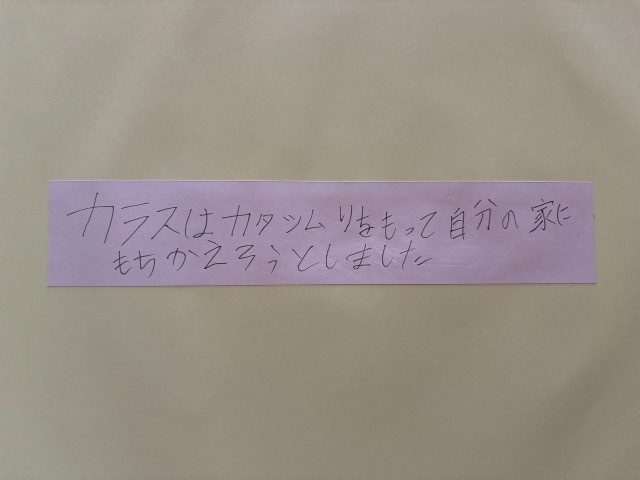 カラスはカタツムリをもって自分の家に
もちかえろうとしました